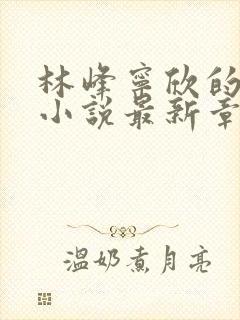 林峰寧欣的
小說最新章
溫奶煮月亮